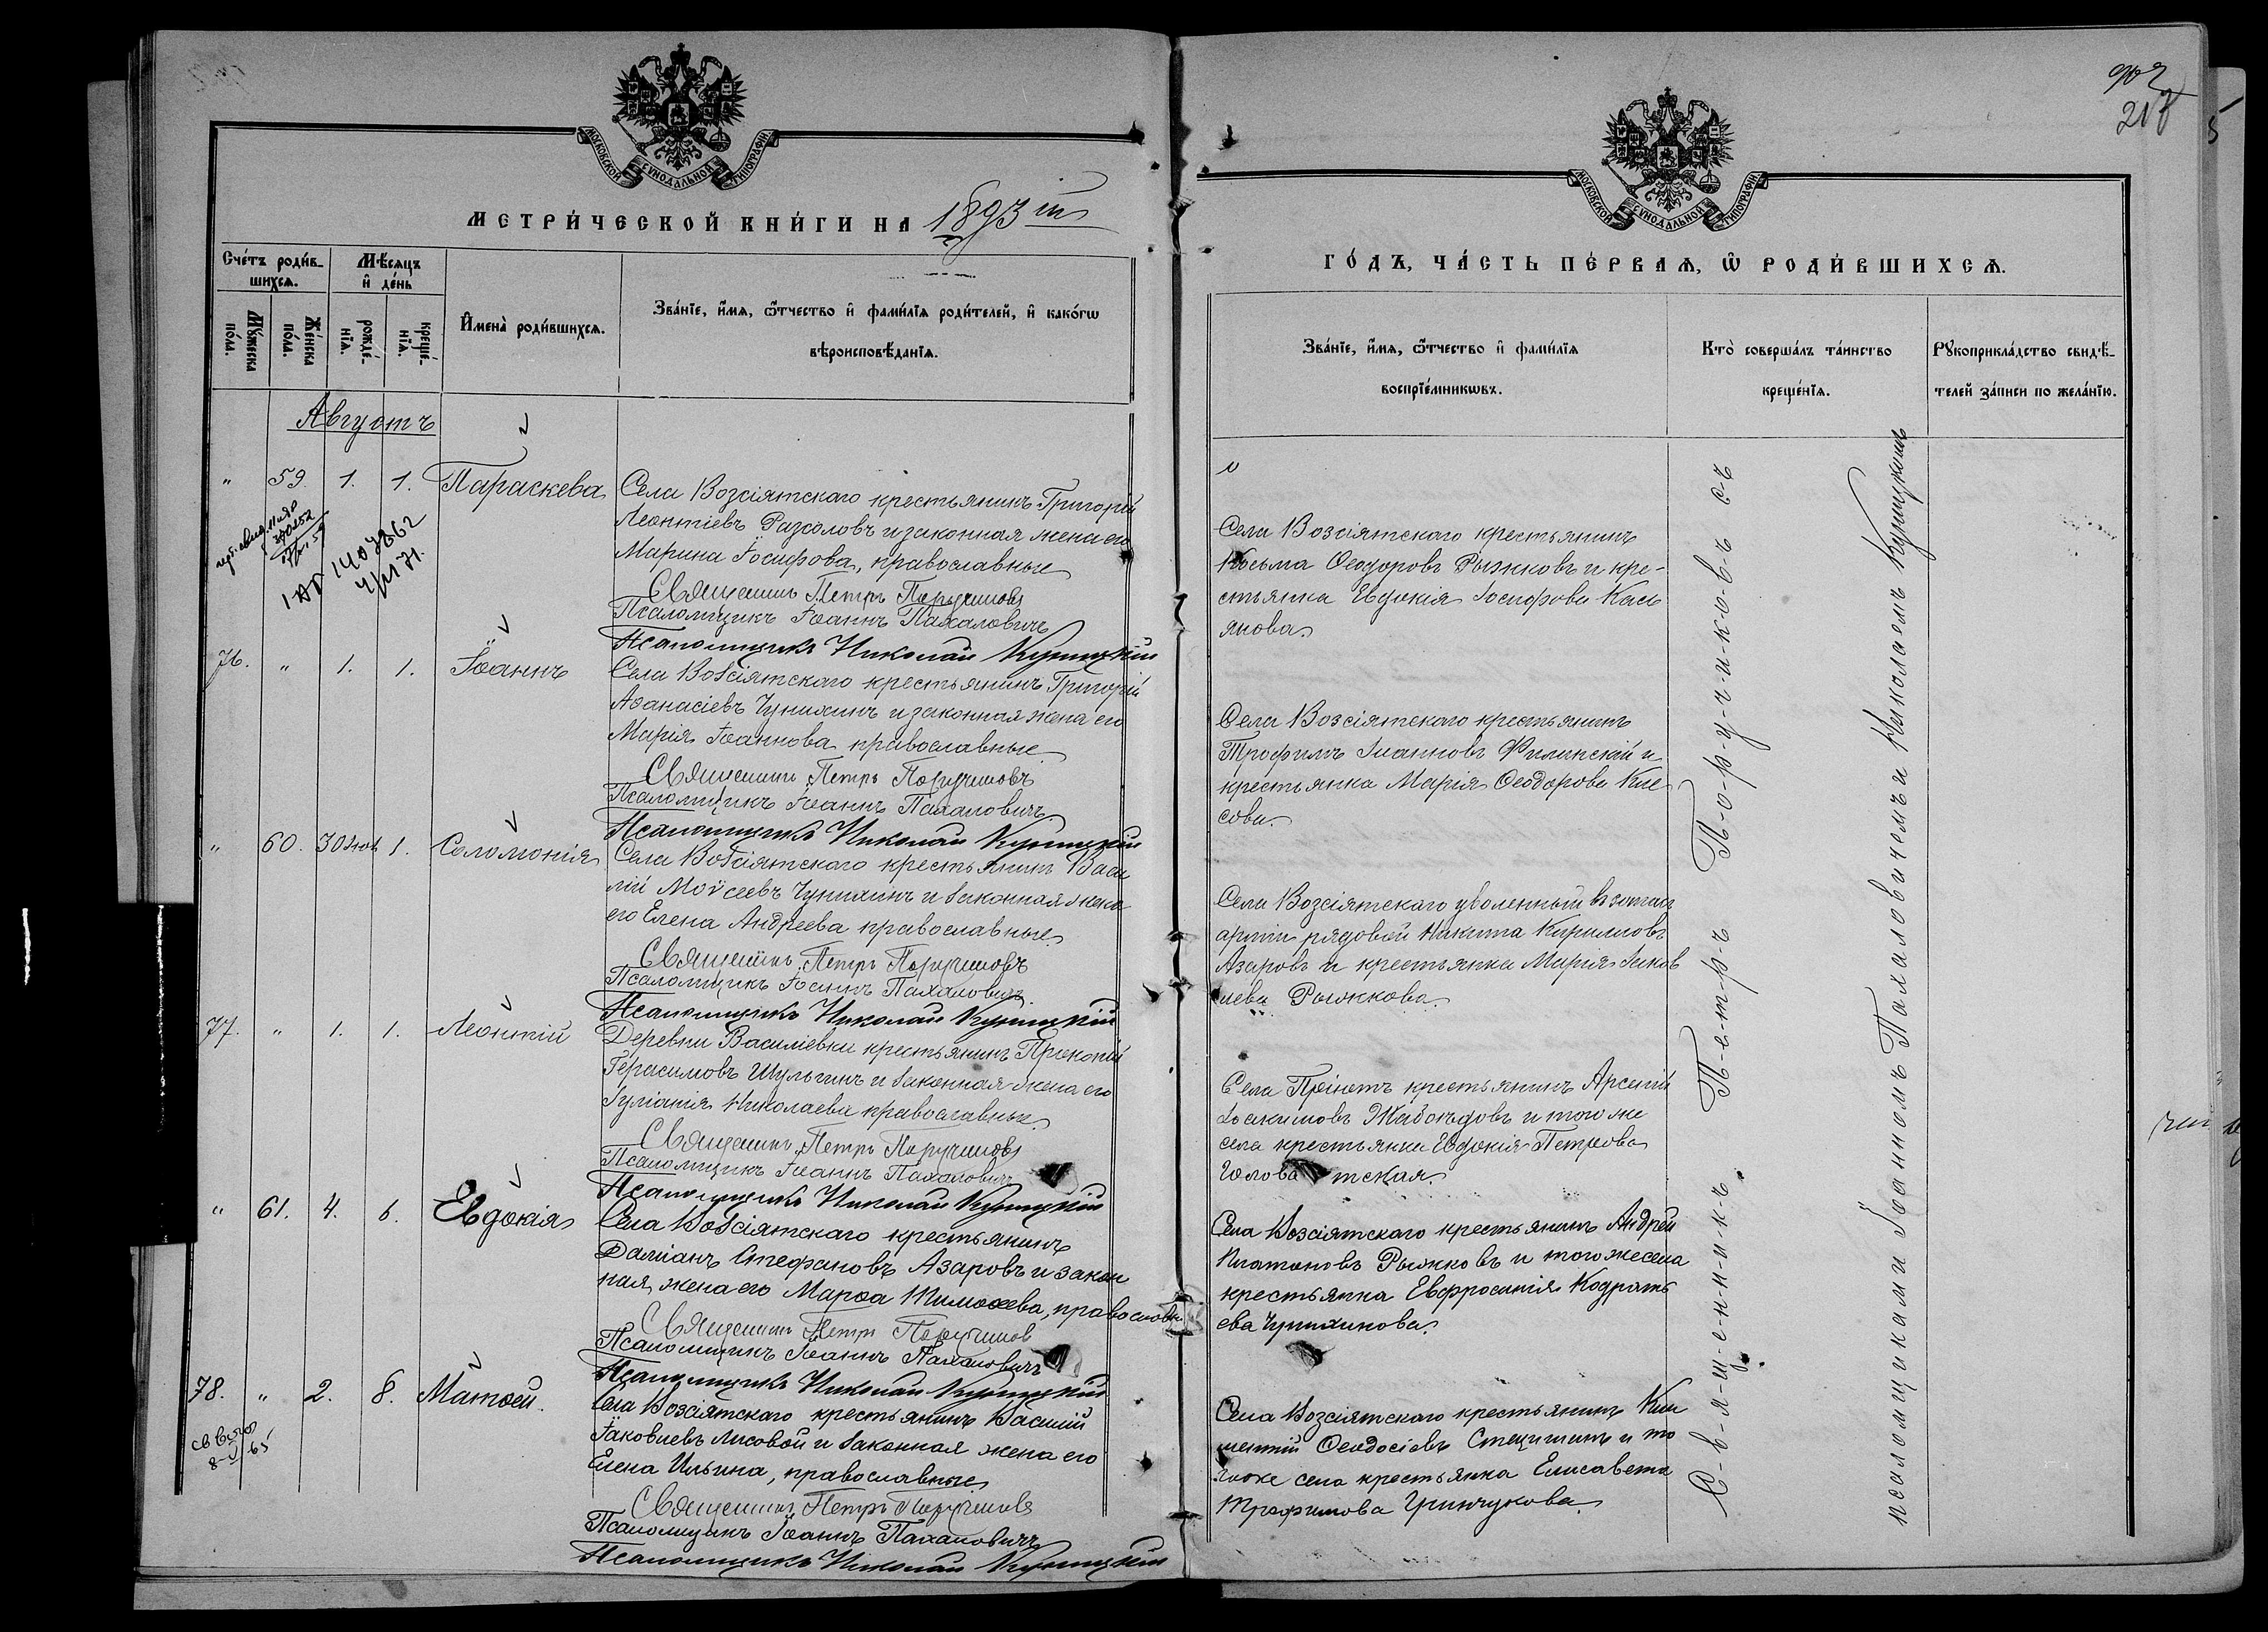 МОСКОВСКОЙ СѴНОДАЛЬНОЙ ТИПОГРАФІИ
МЕТРИ́ЧЕСКОЙ КНИ́ГИ НА 1893 ій
Сче́тъ роди́в-
шихсѧ.
Мѣ́сѧцъ
и҆ де́нь
Мꙋ́жеска
по́ла.
Же́нска
по́ла.
рожде́-
нїѧ.
креще́-
нїѧ.
И҆мена̀ роди́вшихсѧ.
Зва́нїе, и҆́мѧ, ѻ҆́тчество и҆ фами́лїѧ роди́телей, и҆ како́гѡ
вѣроисповѣ́данїѧ.
Августъ
" 59. 1. 1. Параскева
Села Возсіятскаго крестьянинъ Григорій
Леонтіевъ Разсоловъ и законная жена его
Марина Іосифова, православные
Священникъ Петръ Поручиковъ
Псаломщикъ Іоаннъ Пахаловичъ
Псаломщикъ Николай Куницкій
1407862
76. " 1. 1. Іоаннъ
Села Возсіятскаго крестьянинъ Григорій
Аѳанасіевъ Чунихинъ и законная жена его
Марія Іоаннова православные
Священникъ Петръ Поручиковъ
Псаломщикъ Іоаннъ Пахаловичъ
Псаломщикъ Николай Куницкій
" 60. 30 1. Соломонія
Села Возсіятскаго крестьянинъ Васи
лій Моѵсеевъ Чунихинъ и законная жена
его Елена Андреева православные
Священникъ Петръ Поручиковъ
Псаломщикъ Іоаннъ Пахаловичъ
Псаломщикъ Николай Куницкій
77. " 1. 1. Леонтій
Деревни Василіевки крестьянинъ Прокопій
Герасимовъ Шульгинъ и законная жена его
Іуліанія Николаева православные
Священникъ Петръ Поручиковъ
Псаломщикъ Іоаннъ Пахаловичъ
Псаломщикъ Николай Куницкій
" 61. 4. 6. Евдокія
Села Возсіятскаго крестьянинъ
Даміанъ Стефановъ Азаровъ и закон
ная жена его Марѳа Тимоѳеева, православн
Священникъ Петръ Поручиковъ
Псаломщикъ Іоаннъ Пахаловичъ
Псаломщикъ Николай Куницкій
78. " 2. 8. Матѳей.
8-5-65
Села Возсіятскаго крестьянинъ Василій
Іаковлевъ Лисовой и законная жена его
Елена Ильина, православные
Священникъ Петръ Поручиковъ
Псаломщикъ Іоаннъ Пахаловичъ
Псаломщикъ Николай Куницкій
МОСКОВСКОЙ СѴНОДАЛЬНОЙ ТИПОГРАФІИ
ГО́ДЪ, ЧА́СТЬ ПЕ́РВАѦ, Ѡ҆ РОДИ́ВШИХСѦ.
Зва́нїе, и҆́мѧ, ѻ҆́тчество и҆ фами́лїѧ
воспрїе́мникѡвъ.
Кто̀ соверша́лъ та́инство
креще́нїѧ.
Рꙋкоприкла́дство свидѣ́-
телей за́писи по жела́нїю.
Села Возсіятскаго крестьянинъ
Косьма Ѳеодоровъ Рыжковъ и кре-
стьянка Евдокія Іосифова Касъ
янова.
Села Возсіятскаго крестьянинъ
Трофимъ Іоанновъ Филинскій и
крестьянка Марія Ѳеодорова Кис
сова.
Села Возсіятскаго уволенный въ запас
арміи рядовой Никита Кирилловъ
Азаровъ и крестьянка Марія Іаков
лева Рыжкова.
Села Пріютъ крестьянинъ Арсеній
Іоакимовъ Жабоѣдовъ и того же
села крестьянка Евдокія Петрова
Головатская.
Села Возсіятскаго крестьянинъ Андрей
Платоновъ Рыжковъ и того же села
крестьянка Евфросинія Кодрать
ева Чунихинова.
Села Возсіятскаго крестьянинъ Кли
ментій Ѳеодосіевъ Стецишинъ и то
гоже села крестьянка Елисавета
Трофимова Гринчукова.
С-в-я-щ-е-н-н-и-к-ъ П-е-т-р-ъ П-о-р-у-ч-и-к-о-в-ъ с-ъ
псаломщиками Іоанномъ Пахаловичемъ и Николаемъ Куницкимъ